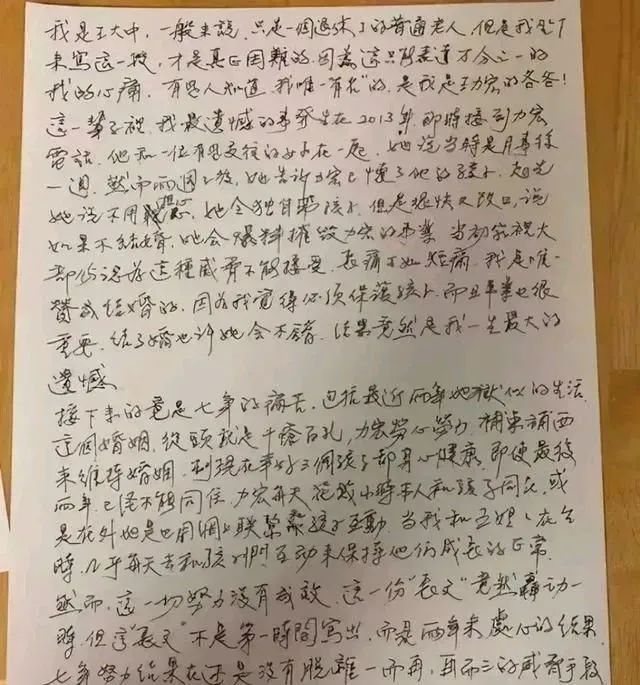 我是王大中,一般來說,只是一個退休了的普通老人,但是我坐下
來寫這一投,才是真正困難的.因為這只能表達万分之一的
我的心痛.有些人知道,我唯一"有名"的,是我是王力宏的爸爸!
這一輩子裡,我最遺憾的事發生在2013年,那時接到力宏
電話,他和一位有過交往的女子在一起,她說當時是月事後
一週.然而兩週之後,她告訴力宏已懷了他的孩子.起先
她說不用擔心,她会獨自帶孩子.但是很快又改口,說
如果不結婚,她会爆料摧毀力宏的事業.當初家裡大
部份認為這種威脅不能接受,長痛不如短痛.我是唯一
贊成結婚的,因為我覺得必須保護孩子,而且事業也很
重要.結了婚也許她会不錯,結果竟然是我一生最大的
遺憾
接下來的竟是七年的痛苦,包括最近兩年地獄似的生活.
這個婚姻,從頭就是千瘡百孔,力宏勞心勞力,補東補西
來維持婚姻,到現在幸好三個孩子都身心健康,即使最後
兩年,已經不能同住,力宏每天花幾小時本人和孩子同在,或
是在外地也用網上聯繫孩子互動.當我和王媽媽在台
時,几乎每天去和孩子們互動來保持他們成長的正常.
然而,這一切努力沒有成效.這一份"長文"竟然轟动一
時.但這"長文"不是第一時間寫出,而是兩年來處心的結果.
七年努力結果在還是沒有脫離一而再,再而三的威脅手段